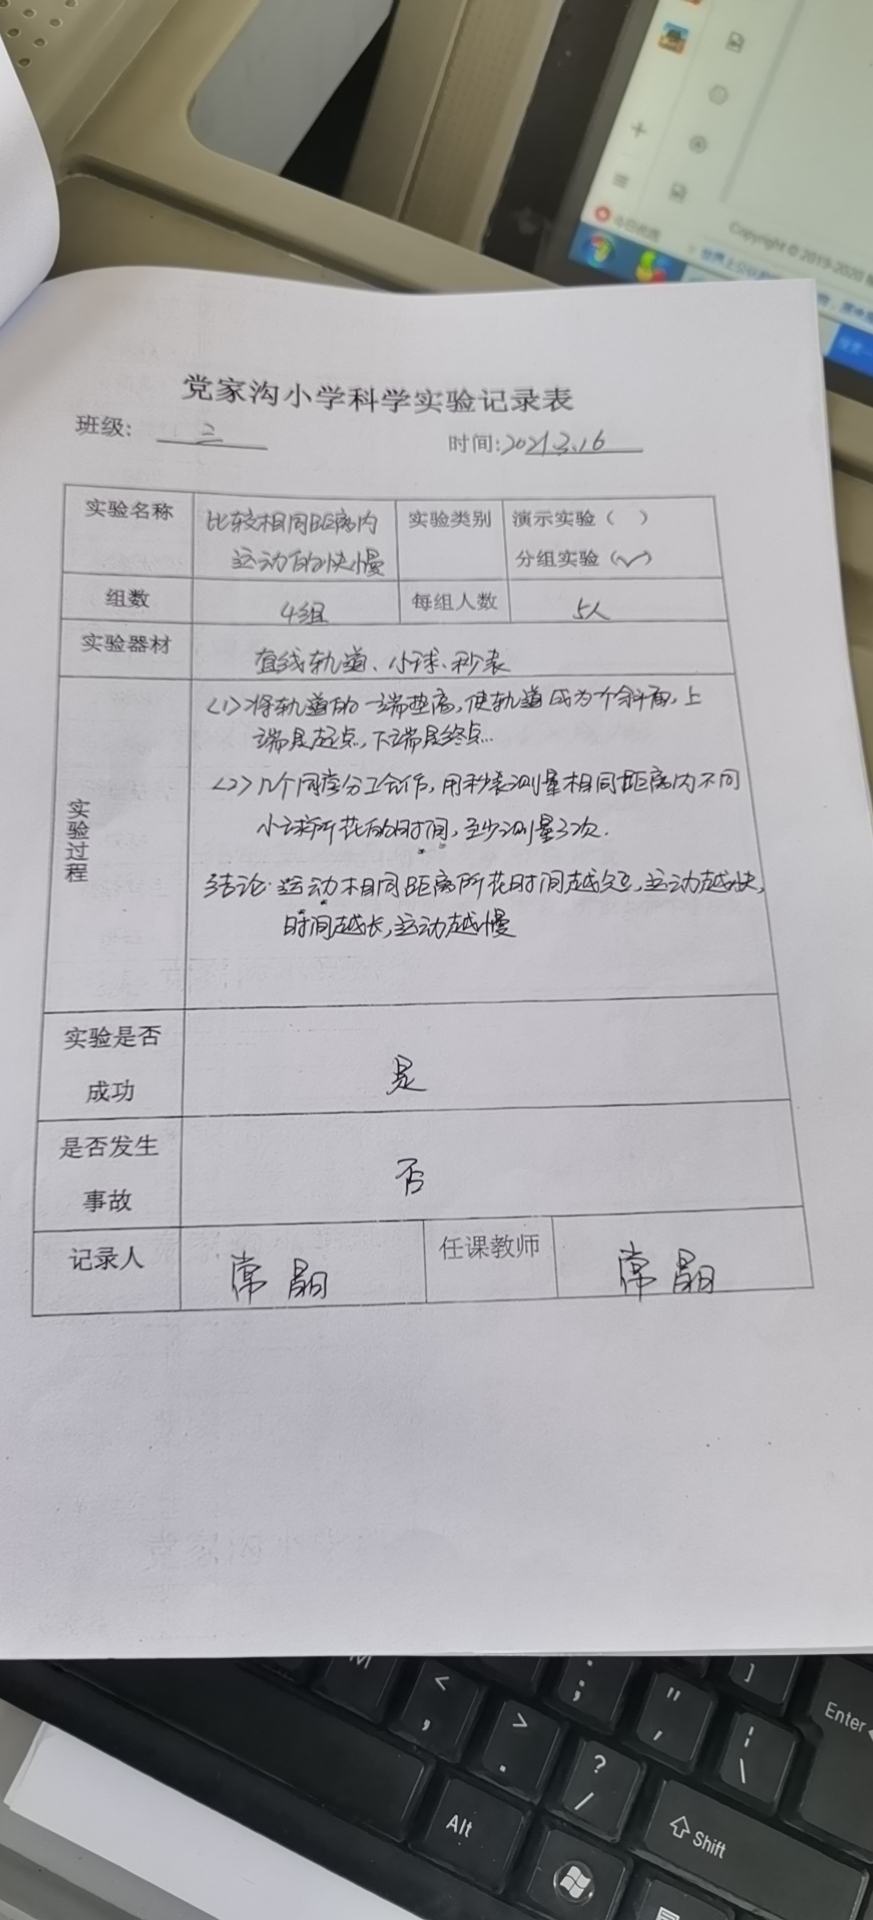 今日优选
Copyright © 2019-2020
世界上公认
党家沟小学科学实验记录表
班级: 三 时间:2021.3.16
实验名称 比较相同距离内 实验类别 演示实验( )
运动的快慢 分组实验(✓)
组数 4组 每组人数 5人
实验器材 直线轨道、小球、秒表
实验过程
<1>将轨道的一端垫高,使轨道成为个斜面,上
端是起点,下端是终点..
<2>几个同学分工合作,用秒表测量相同距离内不同
小球所花的时间,至少测量3次.
结论:运动相同距离所花时间越短,运动越快,
时间越长,运动越慢
实验是否
成功 是
是否发生
事故 否
记录人 常 任课教师 常
M
< ,
> .
: ;
" '
? /
| \
]
Enter
Alt
Shift